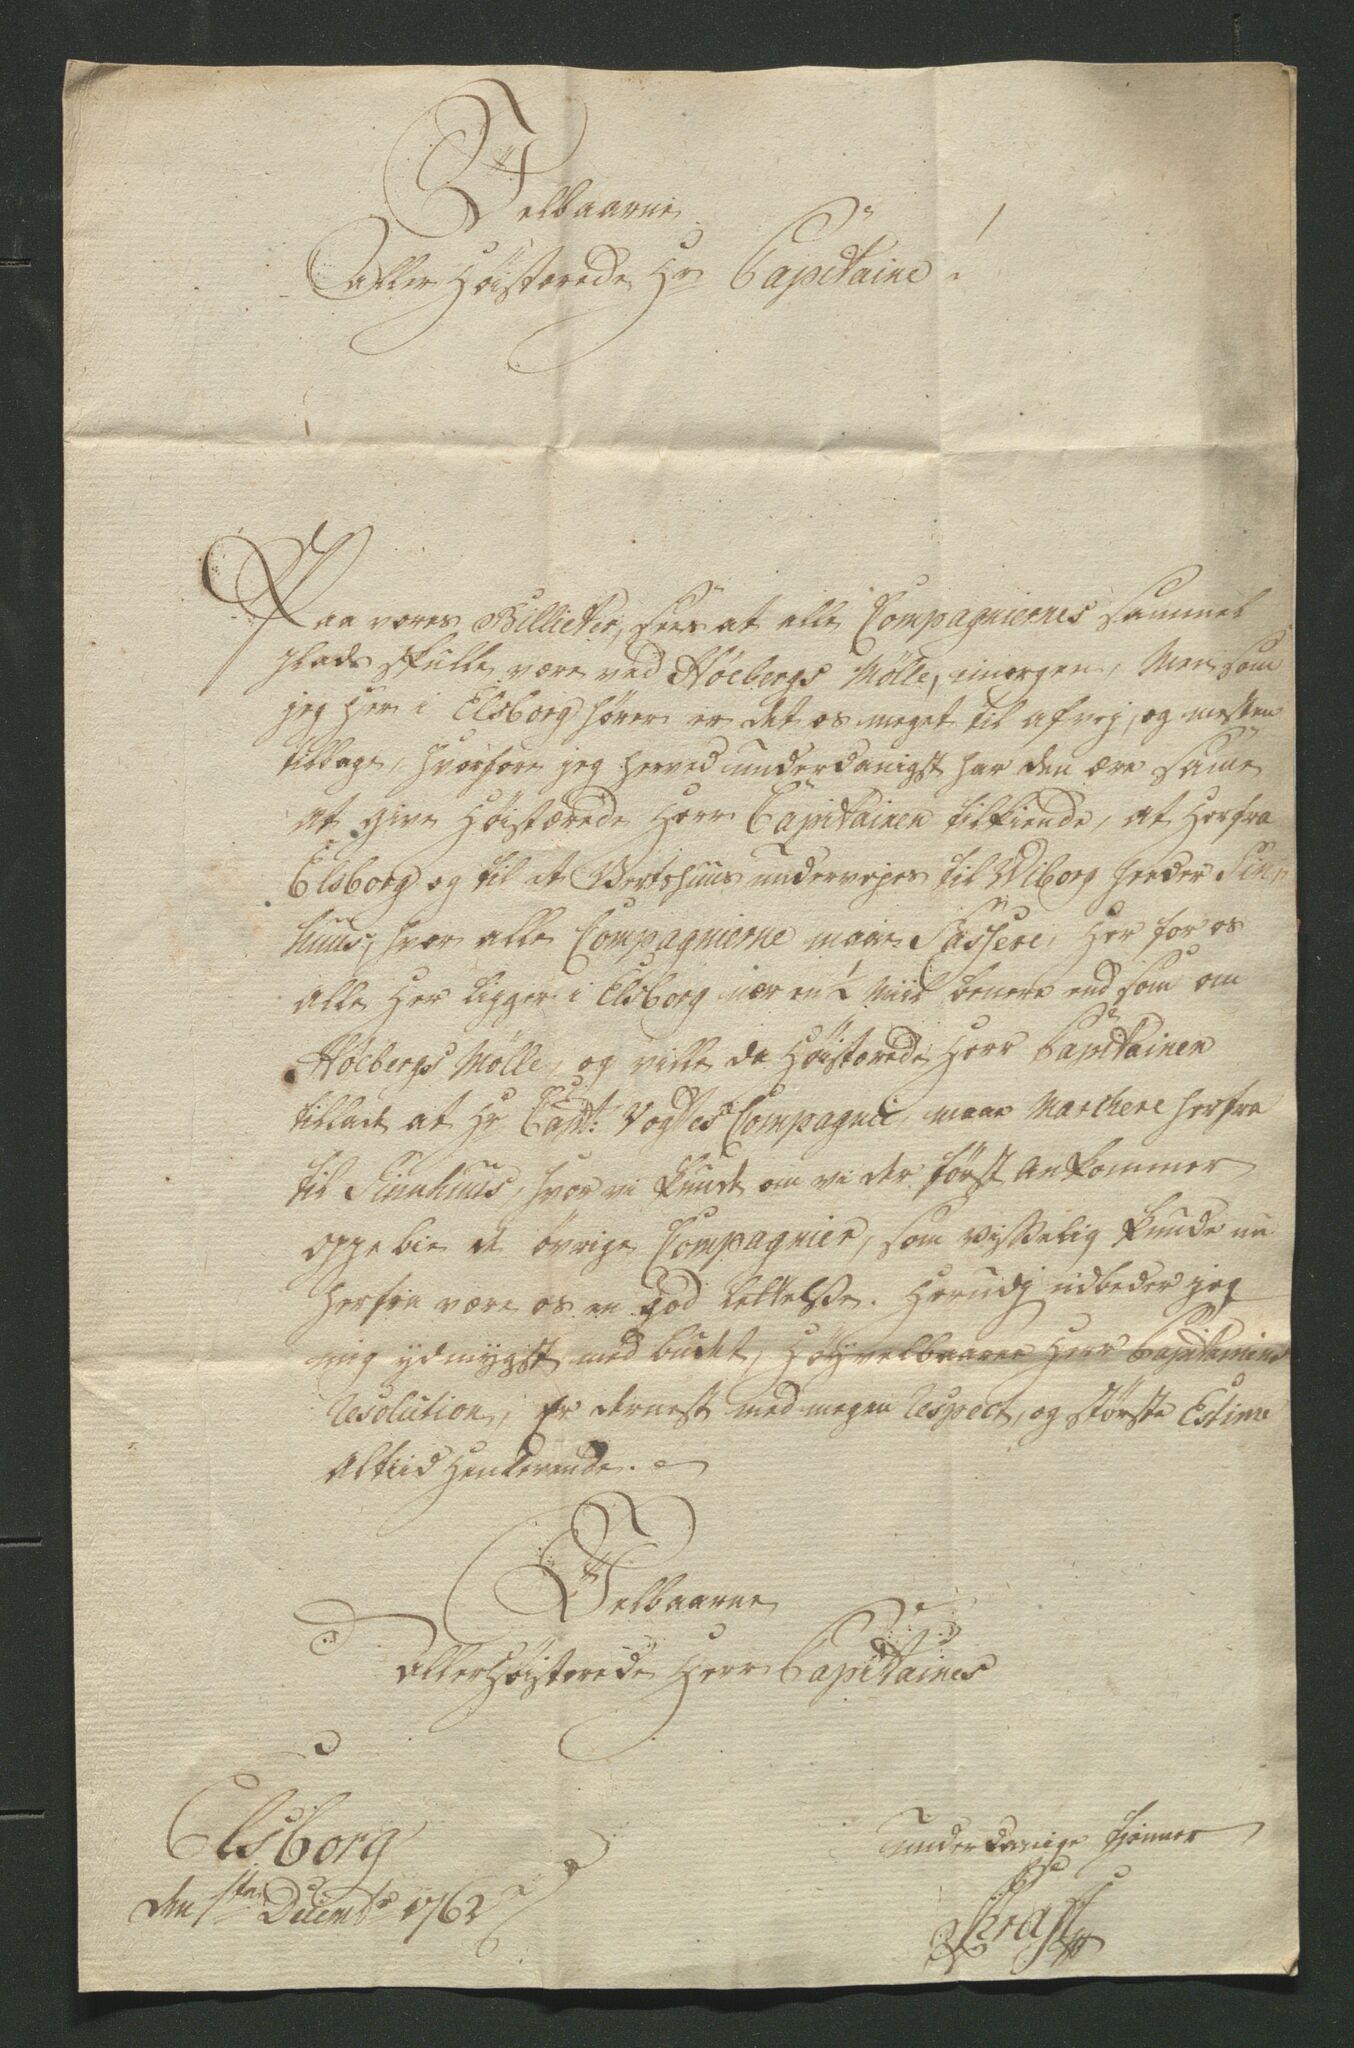 Velbaarne
Aller Høistærede Hr Capitaine!
Paa vores Billietter, sees at alle Compagniernes sammel
plads skulle være ved Høebergs Mølle, imorgen, Men som
jeg her i Elsborg hører er det os meget til afvej, og mesten
tilbage, hvorfore jeg herved underdanigst har den ære
at give Høistærede Herr Capitainen tilkiende, at herfra
Elsborg og til et Vertshuus undervejes til Wiborg heeder
huus, hvor alle Compagnierne maae Passere, Her for os
alle Her ligger i Elsborg nær en ½ Miil benere end som om
Høebergs Mølle, og ville da Høistærede Herr Capitainen
tillade at Hr Capt: Vogtes Compagnie, maae Marchere herfra
til Finnhuus, hvor vi kunde om vi der først ankommer
oppebie de øvrige Compagnier, som visselig kunde nu
herfra være os en god lettelse. Herudj udbeder jeg
mig ydmygst med budet, Høyvelbaarne Herr Capitainens
Resolution, Er dernest med megen Respect, og største Estime
Altiid Henlevende.
Velbaarne
AllerHøistærede Herr Capitaines
Elsborg
den 1ste Decembr 1762
underdanige tienner
Krafft